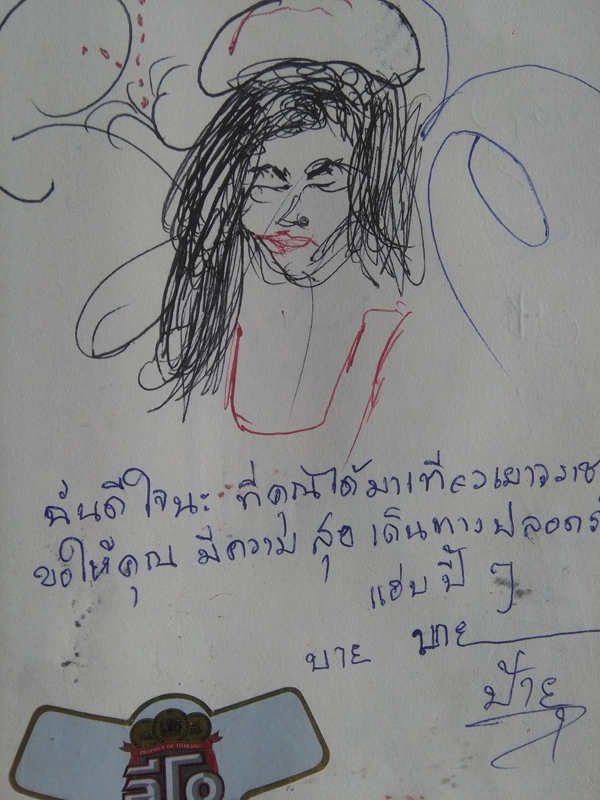 ฉันดีใจนะ ที่คุณได้มาเที่ยวเยาวราช
ขอให้คุณ มีความสุข เดินทางปลอด
แฮปปี้ ๆ
บาย บาย
ป้าย
PRODUCT OF THAILAND
ลีโอ